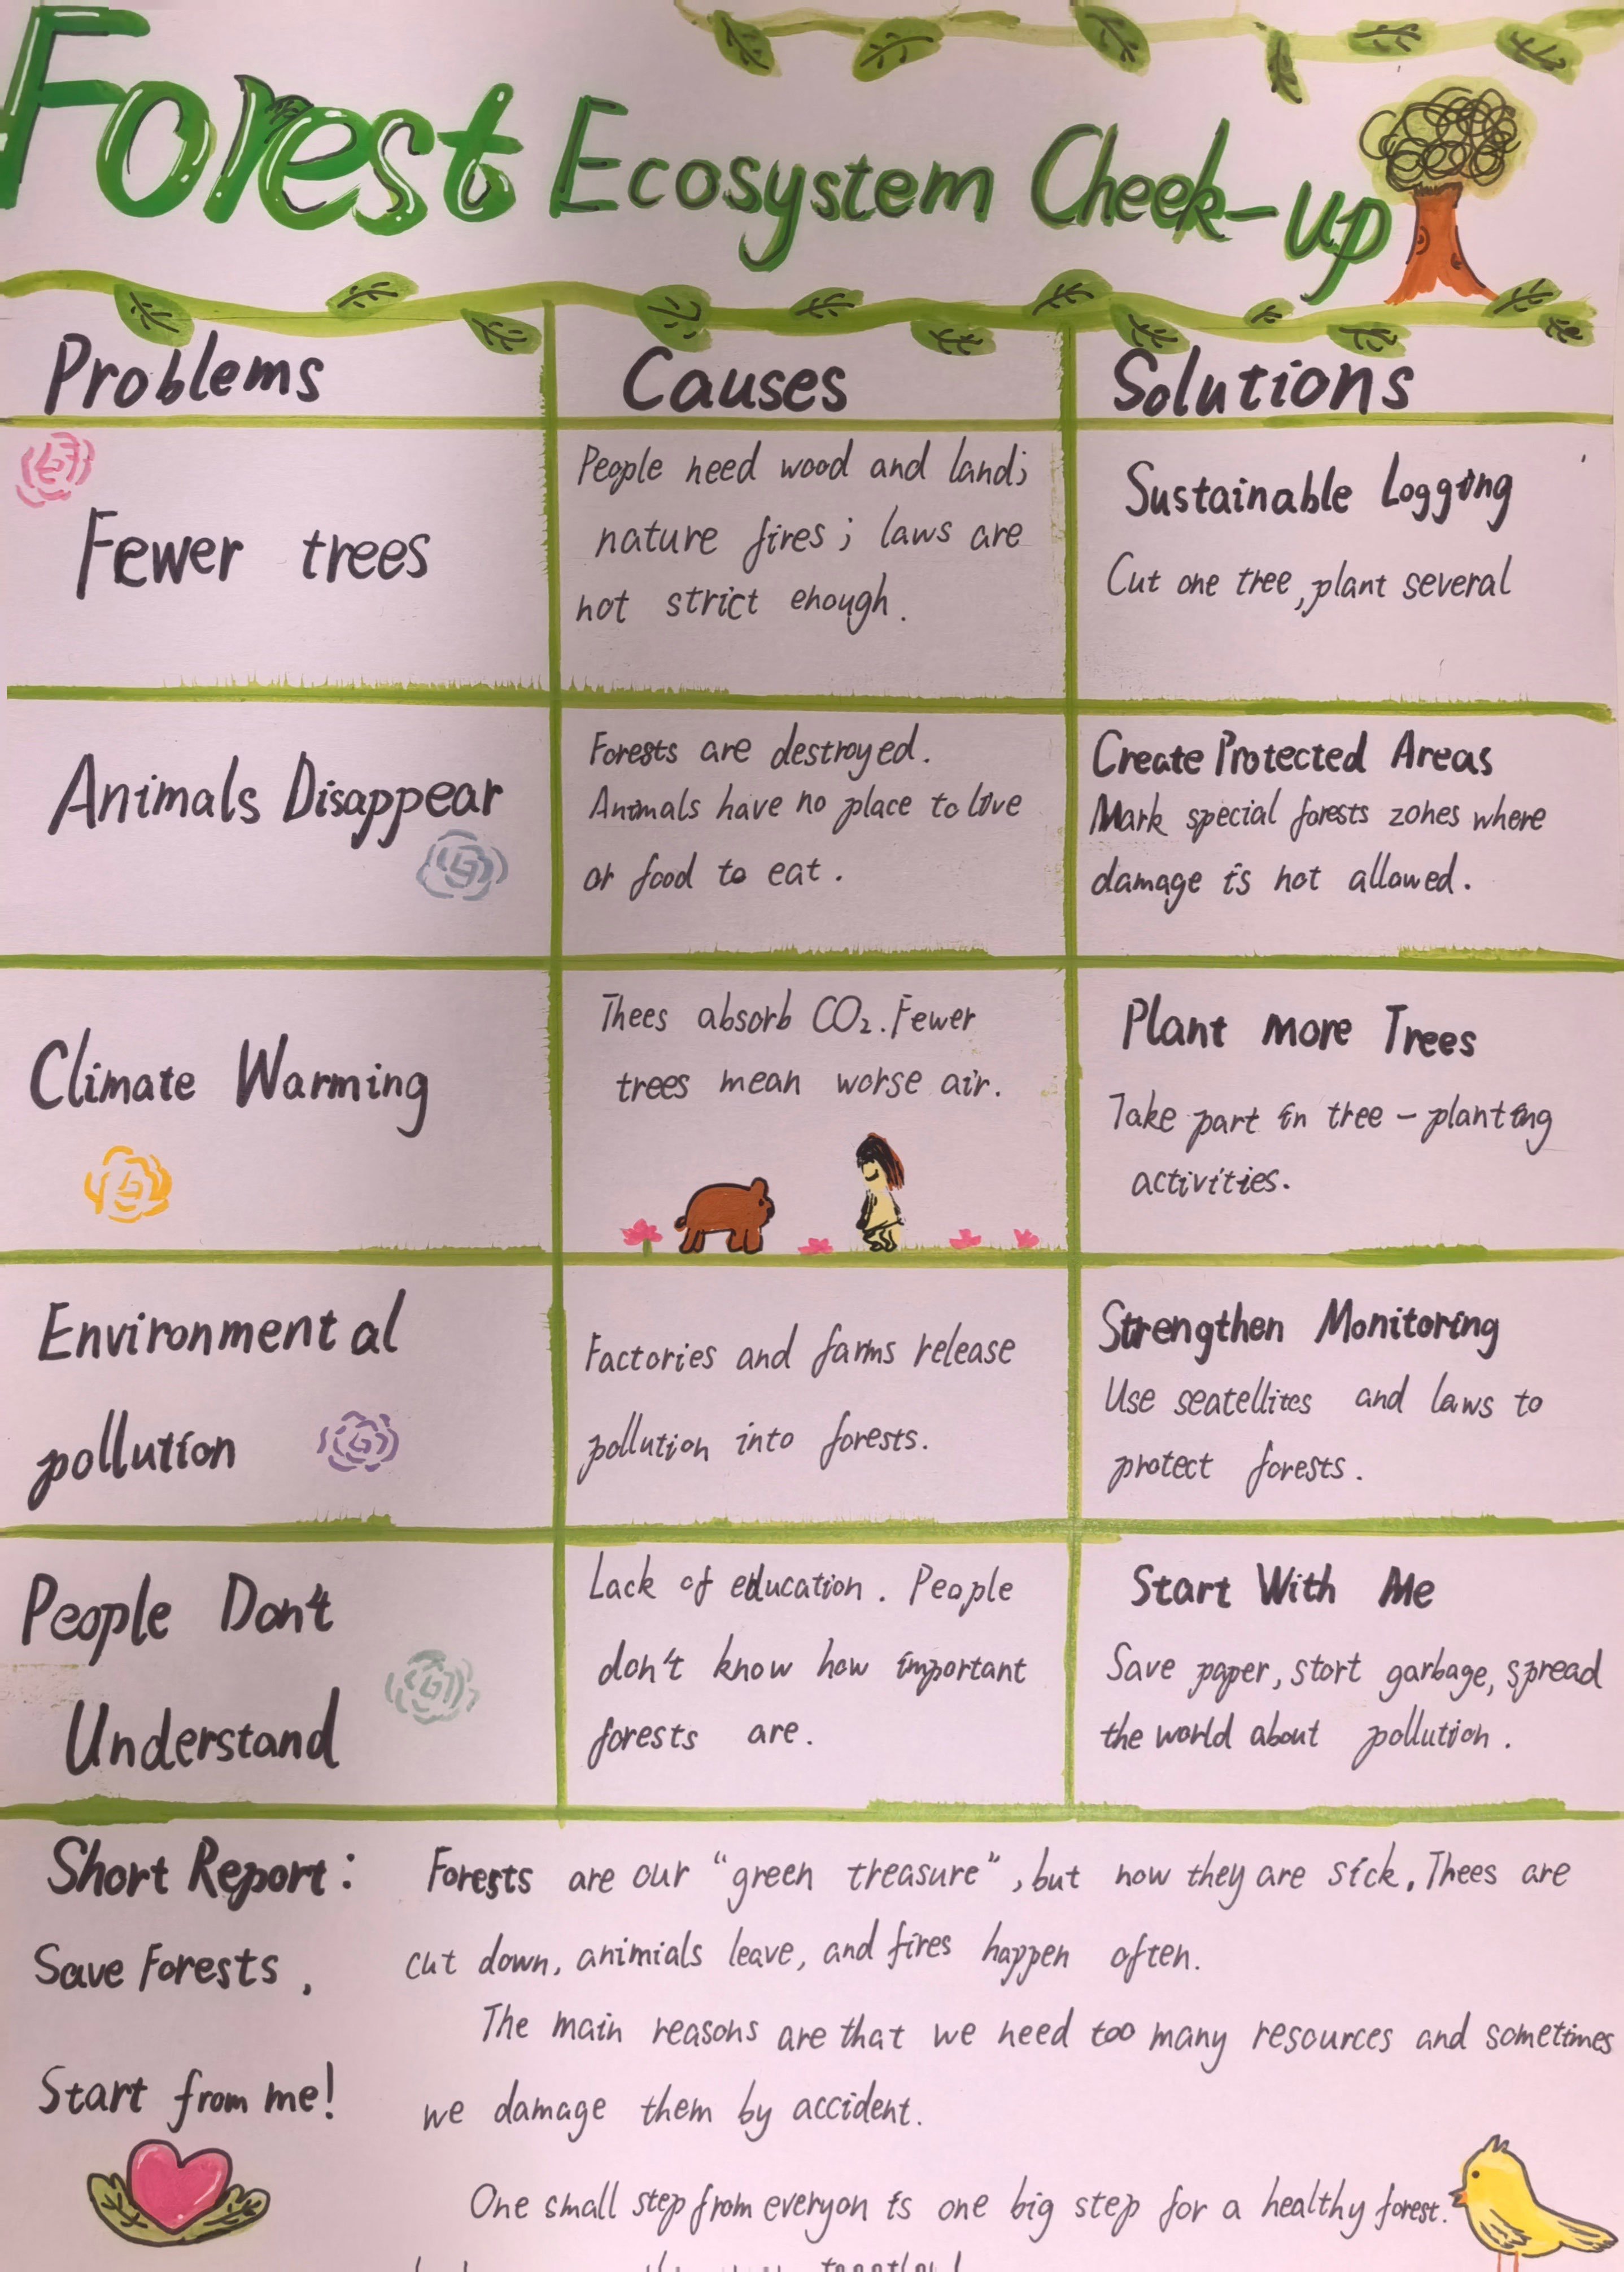 Forest Ecosystem Cheek-up
Problems
Causes
Solutions
Fewer trees
People need wood and land;
nature fires; laws are
not strict enough.
Sustainable Logging
Cut one tree, plant several
Animals Disappear
Forests are destroyed.
Animals have no place to live
or food to eat.
Create Protected Areas
Mark special forests zones where
damage is not allowed.
Climate Warming
Thees absorb CO₂. Fewer
trees mean worse air.
Plant more Trees
Take part in tree-planting
activities.
Environmental
pollution
Factories and farms release
pollution into forests.
Strengthen Monitoring
Use seatellites and laws to
protect forests.
People Don't
Understand
Lack of education. People
don't know how important
forests are.
Start With Me
Save paper, stort garbage, spread
the world about pollution.
Short Report:
Save Forests,
Start from me!
Forests are our "green treasure", but now they are sick. Thees are
cut down, animials leave, and fires happen often.
The main reasons are that we need too many resources and sometimes
we damage them by accident.
One small step from everyon is one big step for a healthy forest.
together!